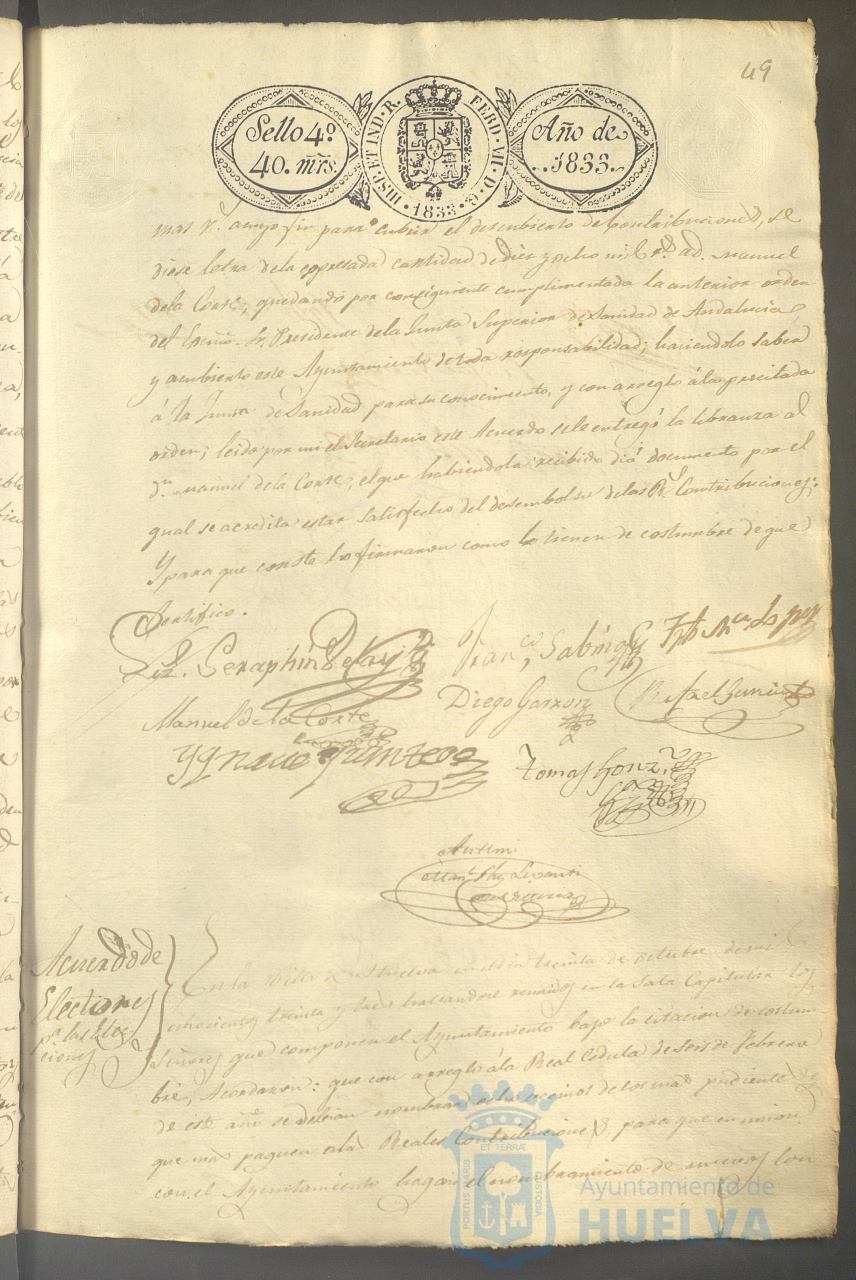 49
Sello 4º
40. mrs.
HISP. ET IND. R. FERD. VII. D. G. 1833
Año de
1833.
para cubrir el descubierto de Contribuciones, se
diese letra de la expresada cantidad de diez y ocho mil rs. a D. Manuel
de la Corte, quedando por consiguiente cumplimentada la anterior orden
del Excmo. Sr. Presidente de la Junta Superior de Sanidad de Andalucia
y a cubierto este Ayuntamiento de toda responsabilidad; haciendolo saber
á la Junta de Sanidad para su conocimiento, y con arreglo á la precitada
orden; leido por mi el Secretario este Acuerdo se le entregó la libranza al
Dn. Manuel de la Corte, el que habiendola recibido dió documento por el
qual se acredita estar satisfecho del desembolso de las Rs. Contribuciones;
Y para que conste lo firmaron como lo tienen de costumbre de que
Certifico.
Seraphin
Franco. Sabino
Manuel de la Corte
Diego Garzon
Rafael
Ygnacio Quintero
Tomas Gonz
Antemi
Acuerdo de
Electores
pa. las Elec
ciones
En la Villa de Huelva en el dia treinta de octubre de mil
ochocientos treinta y tres hallandose reunidos en la Sala Capitular los
Señores que componen el Ayuntamiento bajo la citacion de costum
bre, Acordaron: que con arreglo á la Real Cedula de Seis de Febrero
de este año se debian nombrar ocho vecinos de los mas pudientes
que mas paguen en las Reales Contribuciones para que en union
con el Ayuntamiento hagan el nombramiento de nuevos Con
ET TERRÆ
PORTUS MARIS
CUSTODIA
Ayuntamiento de
HUELVA